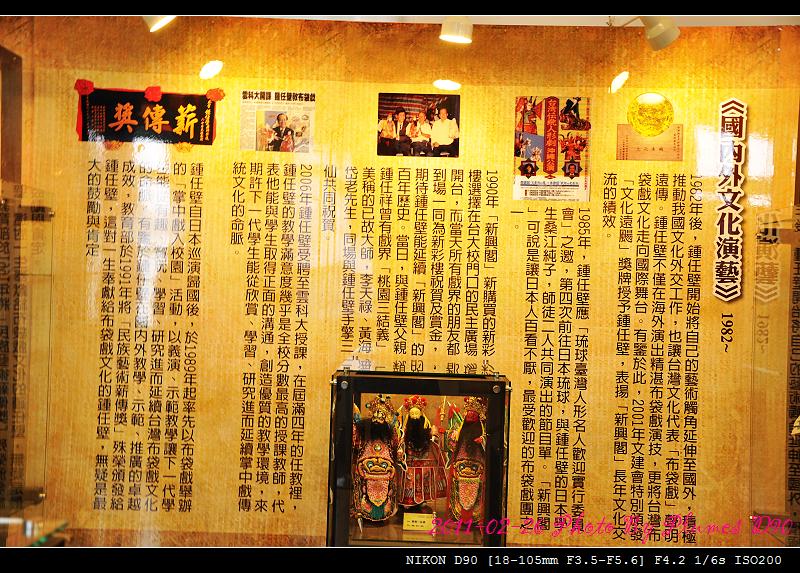 《國內外文化演藝》 1982~
1962年後，鍾任壁開始將自己的藝術觸角延伸至國外，積極
推動我國文化外交工作，也讓台灣文化代表「布袋戲」聲明
遠傳。鍾任壁不僅在海外演出精湛布袋戲演技，更將台灣布
袋戲文化走向國際舞台。有鑒於此，2001年文建會特別頒發
「文化遠颺」獎牌授予鍾任壁，表揚「新興閣」長年文化交
流的績效。
1985年，鍾任壁應「琉球臺灣人形名人歡迎實行委員
會」之邀，第四次前往日本琉球，與鍾任壁的日本學
生桑江純子，師徒二人共同演出的節目單。「新興閣
」可說是讓日本人百看不厭，最受歡迎的布袋戲團
一。
1990年「新興閣」新購買的新彩
樓選擇在台大校門口的民主廣場
開台，而當天所有戲界的朋友都
到場一同為新彩樓祝賀及賞金，
期待鍾任壁能延續「新興閣」的
百年歷史。當日，與鍾任壁父親
鍾任祥曾有戲界「桃園三結義」
美稱的已故大師，李天祿、黃海
岱老先生，同場與鍾任壁手擎三
仙共同祝賀。
2006年鍾任壁受聘至雲科大授課，在屆滿四年的任教裡，
鍾任壁的教學滿意度幾乎是全校分數最高的授課教師，代
表他能與學生取得正面的溝通，創造優質的教學環境，來
期許下一代學生能從欣賞、學習、研究進而延續掌中戲傳
統文化的命脈。
薪傳獎
鍾任壁自日本巡演歸國後，於1989年起率先以布袋戲舉辦
的「掌中戲入校園」活動，以義演、示範教學讓下一代學
學習、研究進而延續台灣布袋戲文化
的命脈。有鑒於鍾任壁在國內外教學、示範、推廣的卓越
成效，教育部於1991年將「民族藝術薪傳獎」殊榮頒發給
鍾任壁，這對一生奉獻給布袋戲文化的鍾任壁，無疑是最
大的鼓勵與肯定。
2011-02-26 Photo By Plumes D90
NIKON D90 [18-105mm F3.5-F5.6] F4.2 1/6s ISO200